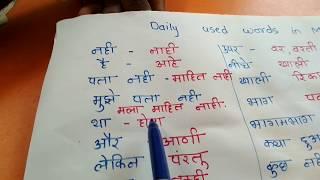 Daily used words in M
नही - नाही
है - आहे
पता नही - माहित नही
मुझे पता नही
मला माहित नाही.
था - होता
और आणी
लेकिन परंतु
ऊपर - वर, वरती
नीचे खाली
खाली रिका
भाग
भागमभाग
क्या हुआ
कुछ नही